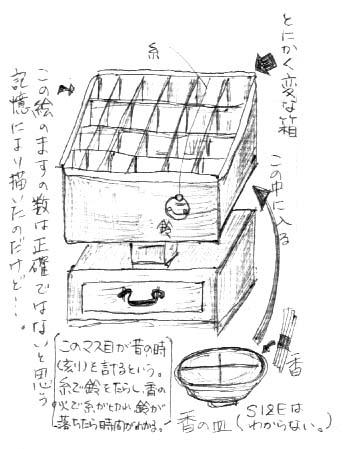 とにかく変な箱
糸
この中に入る
この絵のますの数は正確ではないと思う
記憶により描いたのだけど…。
鈴
このマス目が昔の時
(刻り)を計るという。
糸で鈴をたらし、香の
火で糸がきれ鈴が
落ちたら時間がわかる。
香
香の皿
(SIZEは
わからない。)